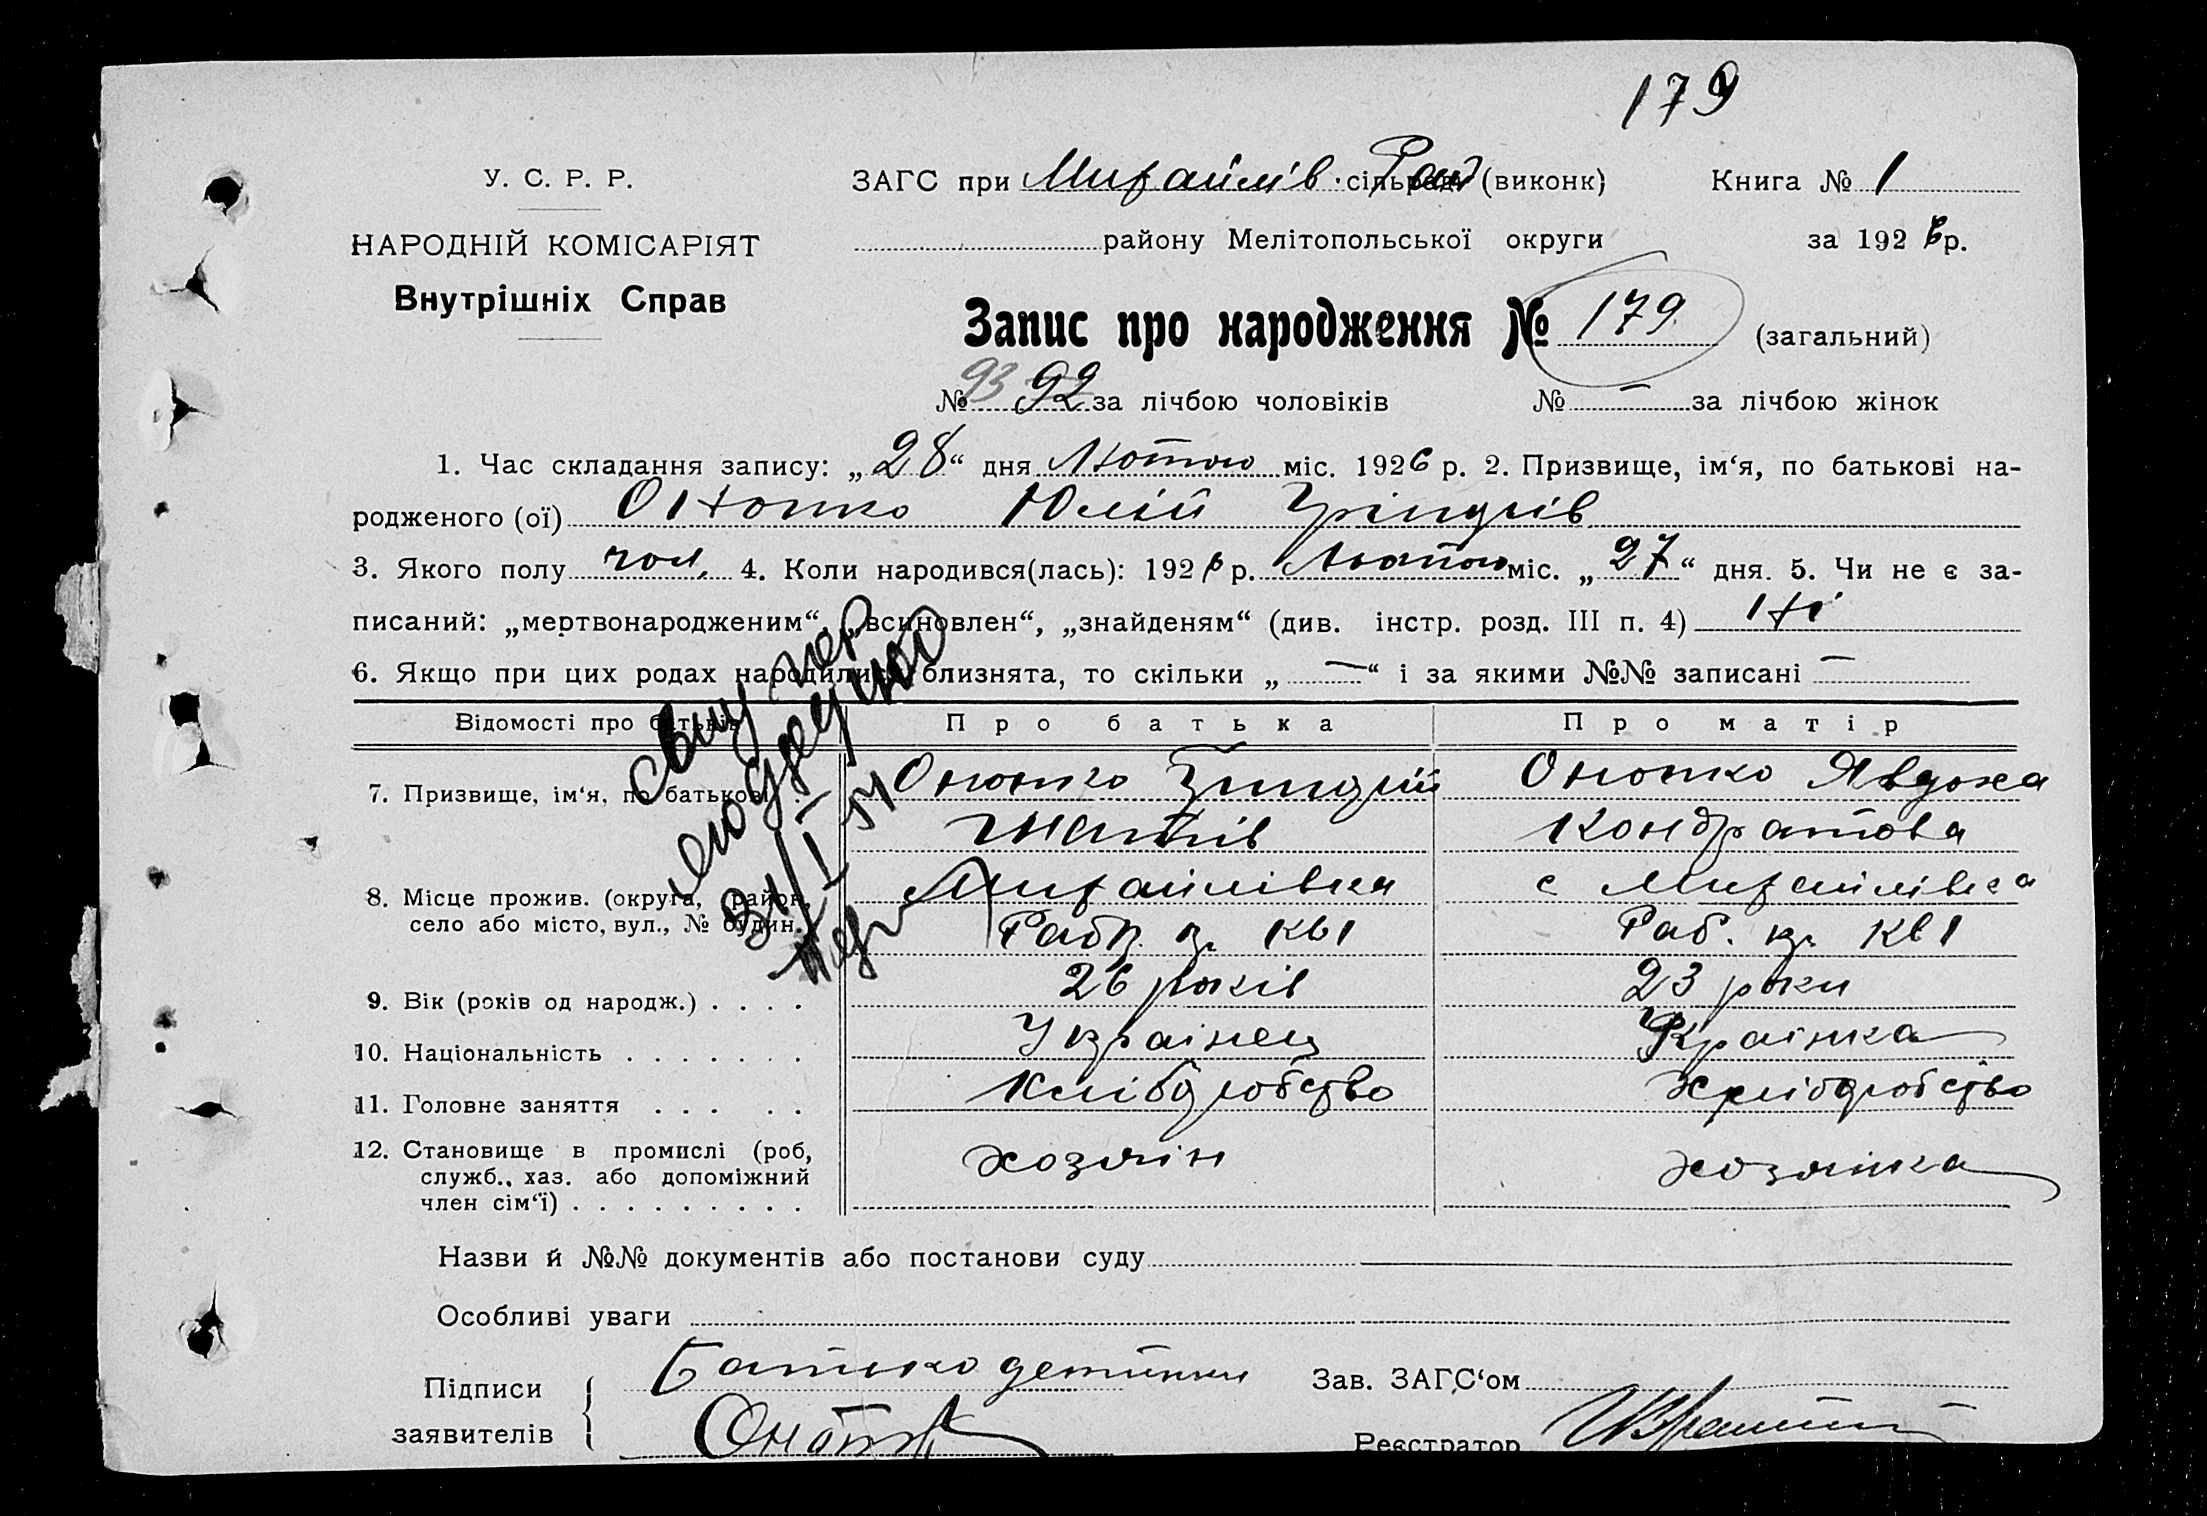 179
У. С. Р. Р.
НАРОДНІЙ КОМІСАРІЯТ
Внутрішніх Справ
ЗАГС при Михайлів. сільради (виконк)
Книга № 1
району Мелітопольської округи
за 1926 р.
Запис про народження № 179 (загальний)
№ 93 92 за лічбою чоловіків № — за лічбою жінок
1. Час складання запису: „28“ дня Лютого міс. 1926 р. 2. Призвище, ім‘я, по батькові на-
родженого (ої) Онопко Юлій
3. Якого полу чол. 4. Коли народився(лась): 1926 р. Лютого міс. „27“ дня. 5. Чи не є за-
писаний: „мертвонародженим“, „всиновлен“, „знайденям“ (див. інстр. розд. III п. 4) Ні
6. Якщо при цих родах народились близнята, то скільки „—“ і за якими №№ записані —
Відомості про батьків
Про батька
Про матір
7. Призвище, ім‘я, по батькові .
Онопко
Онопко Явдоха
Кондратова
8. Місце прожив. (округа, район,
село або місто, вул., № будин.
Михайлівка
кв 1
с Михайлівка
Раб. кв 1
9. Вік (років од народж.) . . . .
26 років
23 роки
10. Національність . . . . . . .
Українец
Українка
11. Головне заняття . . . . .
Хліборобство
Хліборобство
12. Становище в промислі (роб,
служб., хаз. або допоміжний
член сім‘ї) . . . . . . . . .
хозяін
хозяінка
31/I 51
Назви й №№ документів або постанови суду
Особливі уваги
Підписи
заявителів
Батько детини
Зав. ЗАГС‘ом
Реєстратор